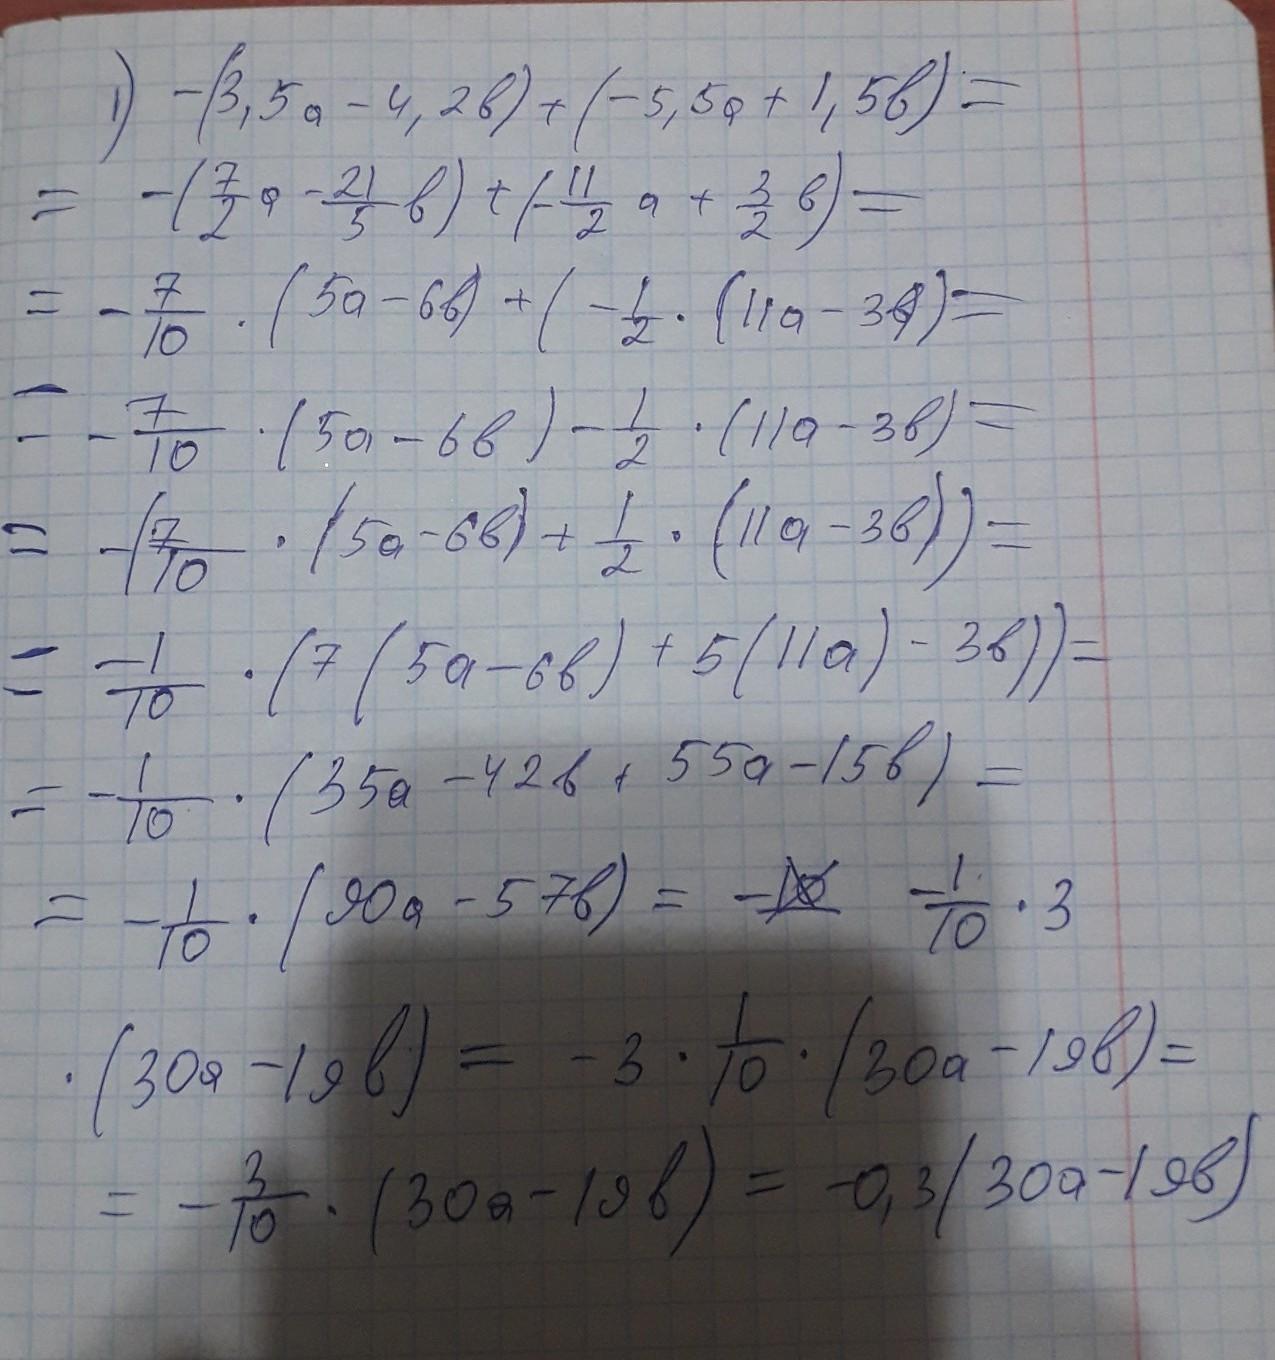 1) -(3,5а - 4,2в) + (-5,5а + 1,5в) =
= -(7/2 а - 21/5 в) + (-11/2 а + 3/2 в) =
= - 7/10 · (5а - 6в) + (- 1/2 · (11а - 3в) =
= - 7/10 · (5а - 6в) - 1/2 · (11а - 3в) =
= -(7/10 · (5а - 6в) + 1/2 · (11а - 3в)) =
= -1/10 · (7(5а - 6в) + 5(11а) - 3в)) =
= - 1/10 · (35а - 42в + 55а - 15в) =
= - 1/10 · (90а - 57в) = - 1/10 · 3
· (30а - 19в) = -3 · 1/10 · (30а - 19в) =
= - 3/10 · (30а - 19в) = -0,3(30а - 19в)